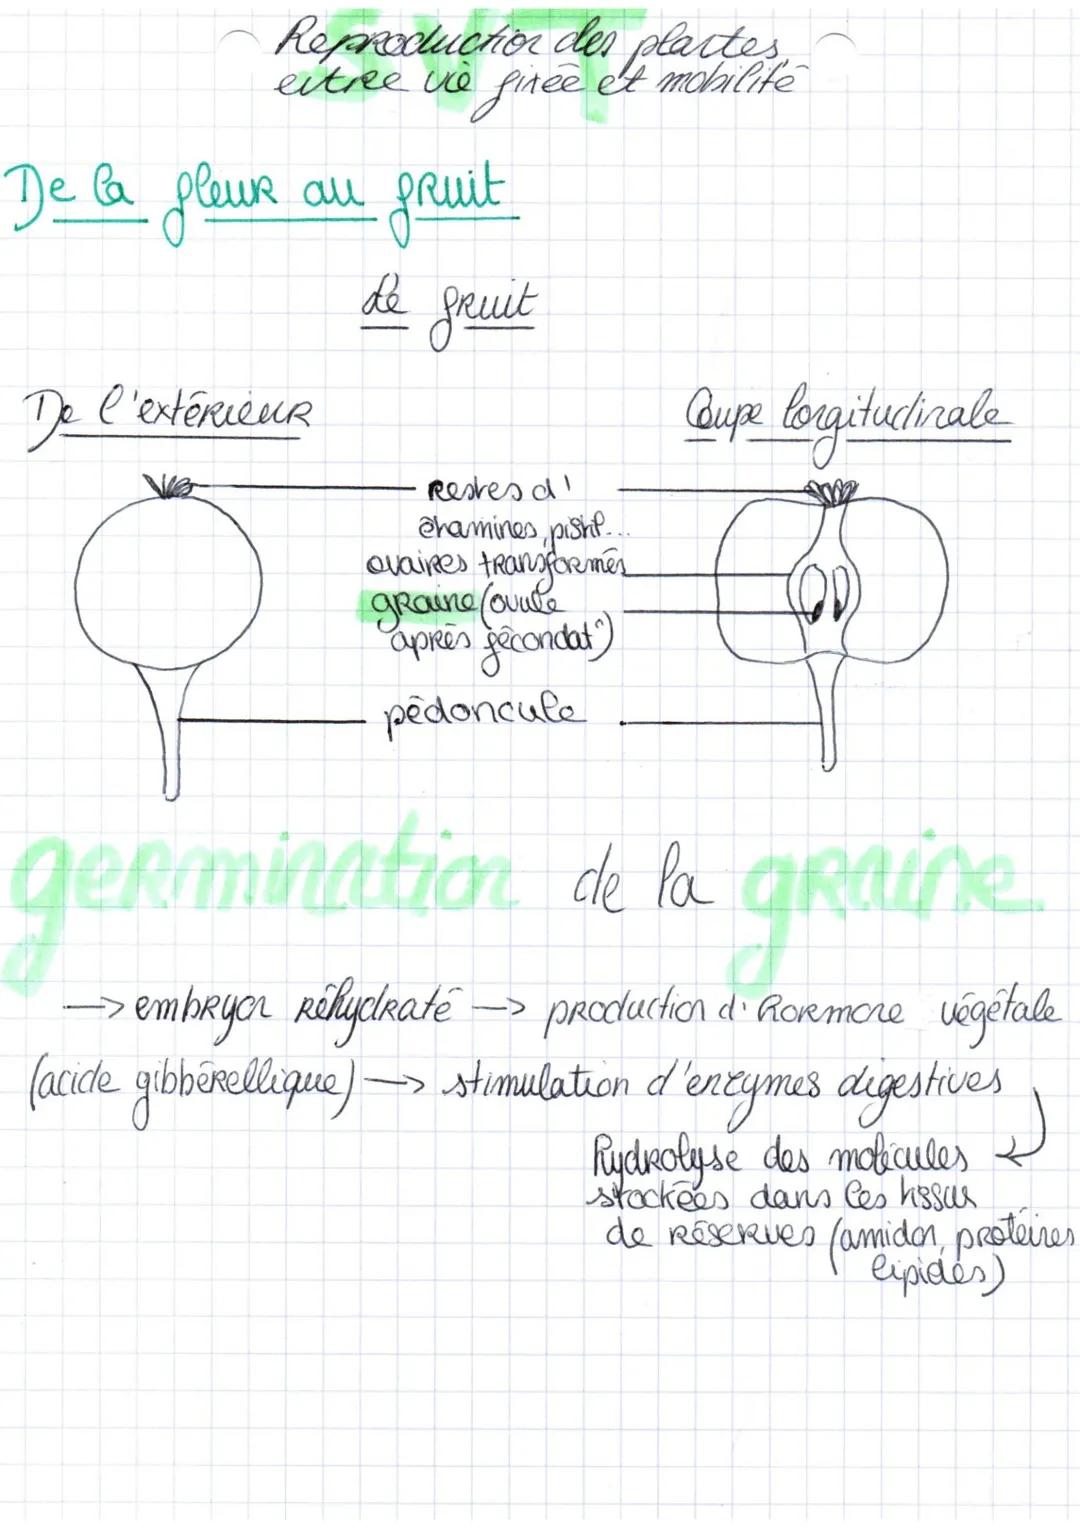 SVT
Reproduction des plantes
entre vie fixée et mobilité
De la fleur au fruit
Le fruit
De l'extérieur
Coupe longitudinale
Restes d'
étamines, pistil...
ovaires transformés
graine (ovule
après fécondat°)
pédoncule
germination de la graine
→ embryon réhydraté → production d'hormone végétale
(acide gibbérellique) → stimulation d'enzymes digestives
hydrolyse des molécules
stockées dans les tissus
de réserves (amidon, protéines
lipides)